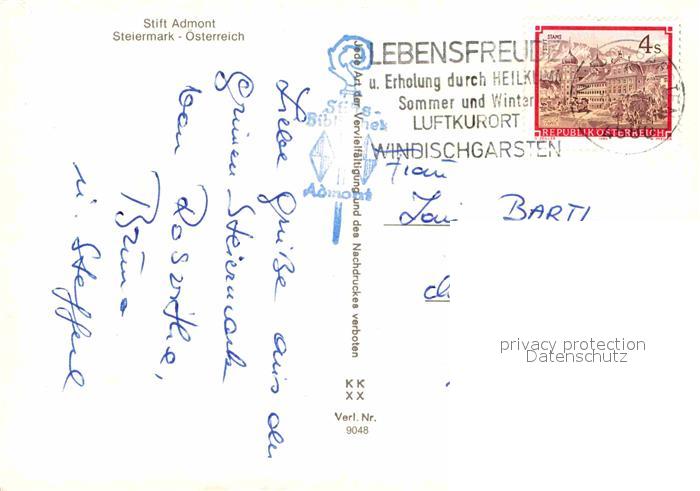 Stift Admont
Steiermark - Österreich
Liebe Grüße aus der
Grünen Steiermark
von Roswitha,
Bruno
u. Stefferl
Stifts-
Bibliothek
Admont
Jede Art der Vervielfältigung und des Nachdruckes verboten
KK
XX
Verl. Nr.
9048
LEBENSFREUDE
u. Erholung durch HEILKLIMA
Sommer und Winter
LUFTKURORT
WINDISCHGARSTEN
STAMS
4s
REPUBLIK ÖSTERREICH
Frau
BARTI
privacy protection
Datenschutz